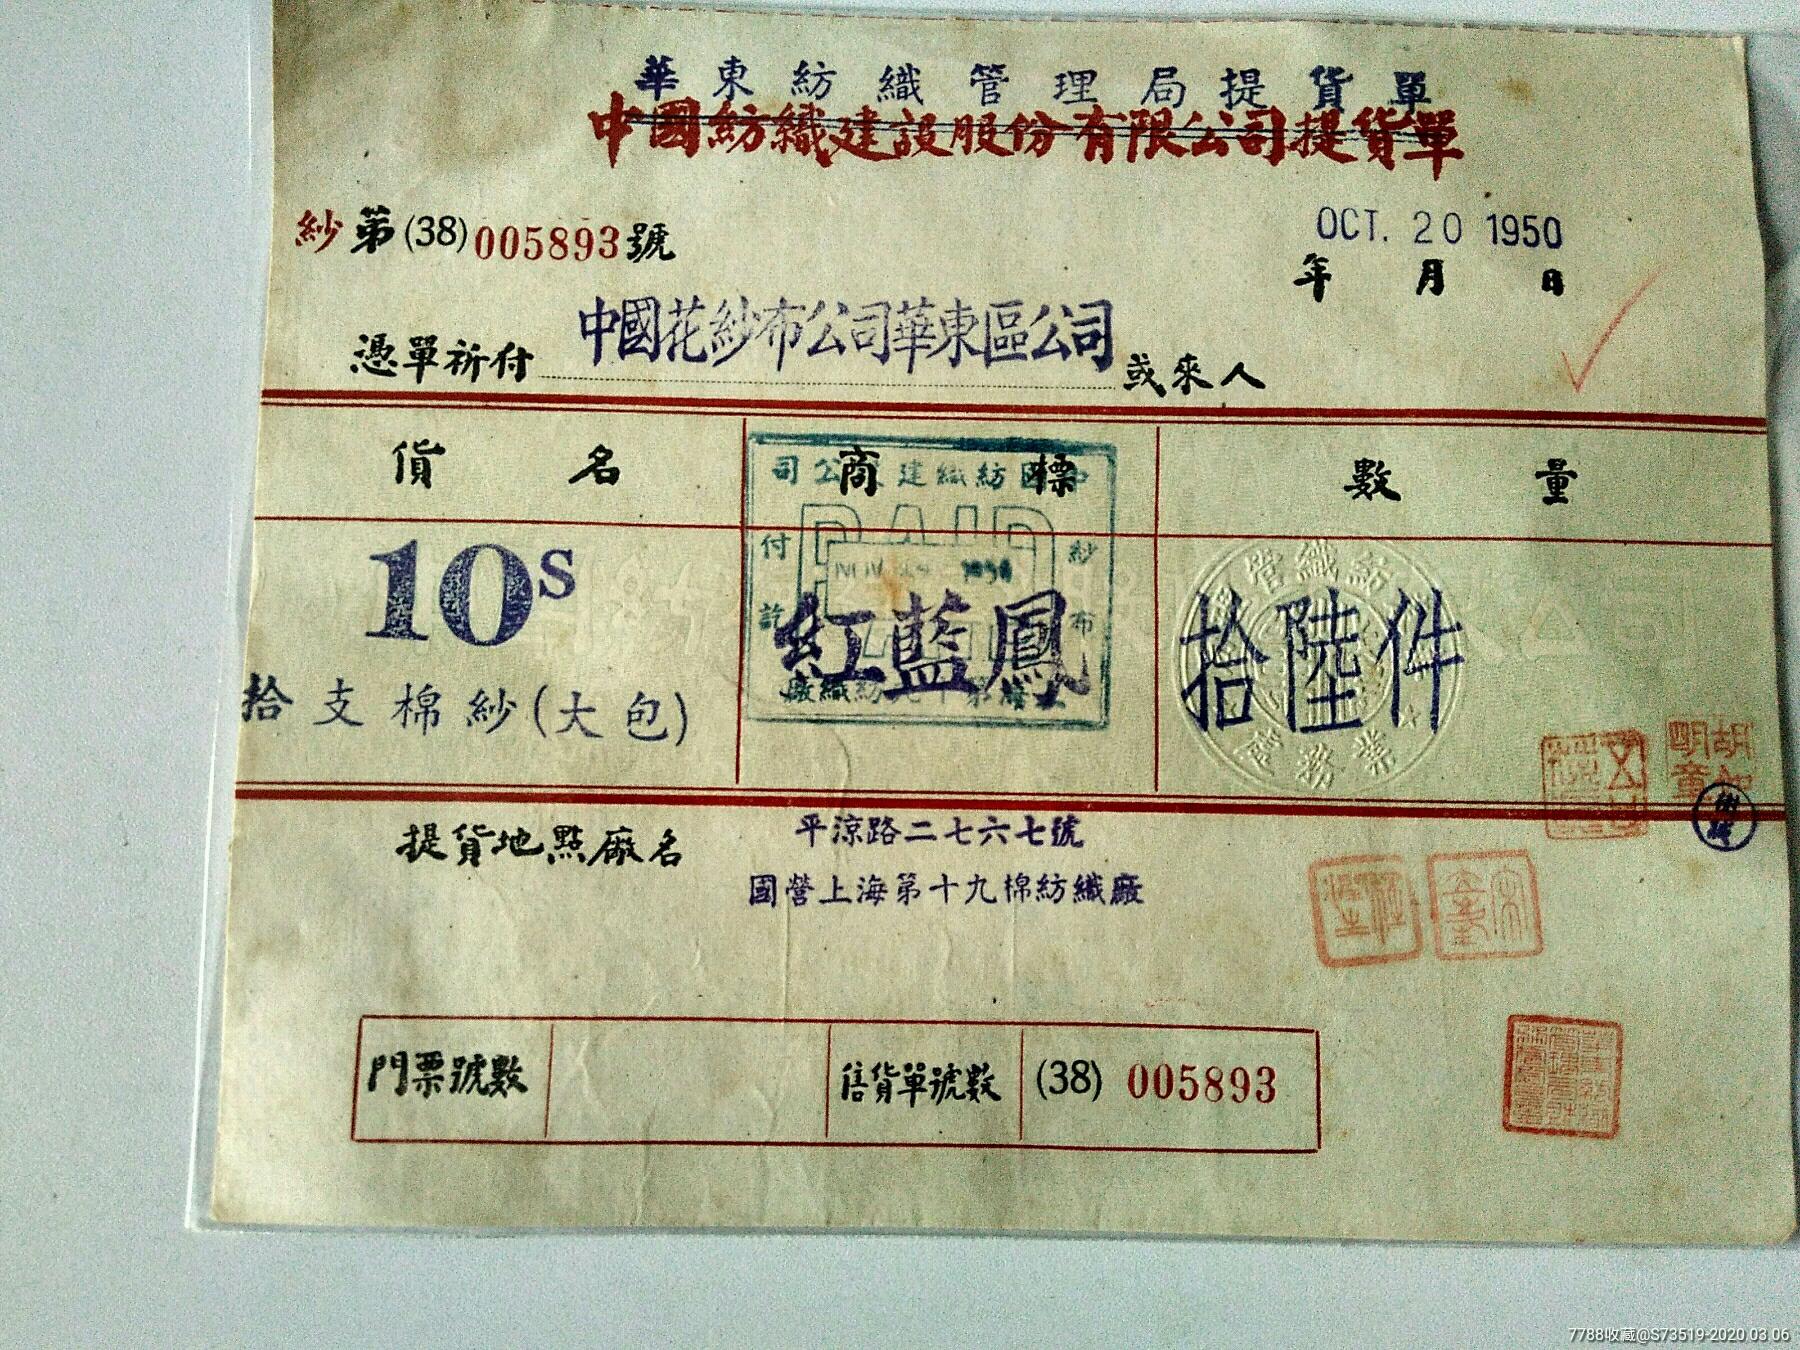 華東紡織管理局提貨單
中國紡織建設股份有限公司提貨單
紗第(38)005893號
OCT. 20 1950
年 月 日
憑單祈付 中國花紗布公司華東區公司 或來人
貨名 商標 數量
司公 建織紡國中
PAID
付 紗
訖 布
10s 紅藍鳳 拾陸件
拾支棉紗(大包)
管織紡
業務處
提貨地點廠名 平涼路二七六七號
國營上海第十九棉紡織廠
門票號數 售貨單號數 (38) 005893
7788收藏@S73519-2020.03.06